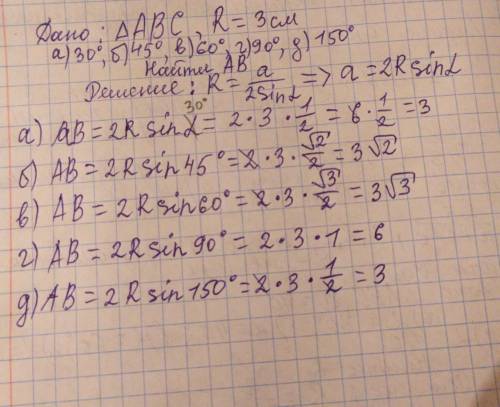 Дано: △ABC, R = 3 см
а) 30°, б) 45°, в) 60°, г) 90°, д) 150°
Найти AB
Решение: R = a/2sinα => a = 2R sinα
30°
а) AB = 2R sinα = 2 · 3 · 1/2 = 6 · 1/2 = 3
б) AB = 2R sin 45° = 2 · 3 · √2/2 = 3√2
в) AB = 2R sin 60° = 2 · 3 · √3/2 = 3√3
г) AB = 2R sin 90° = 2 · 3 · 1 = 6
д) AB = 2R sin 150° = 2 · 3 · 1/2 = 3